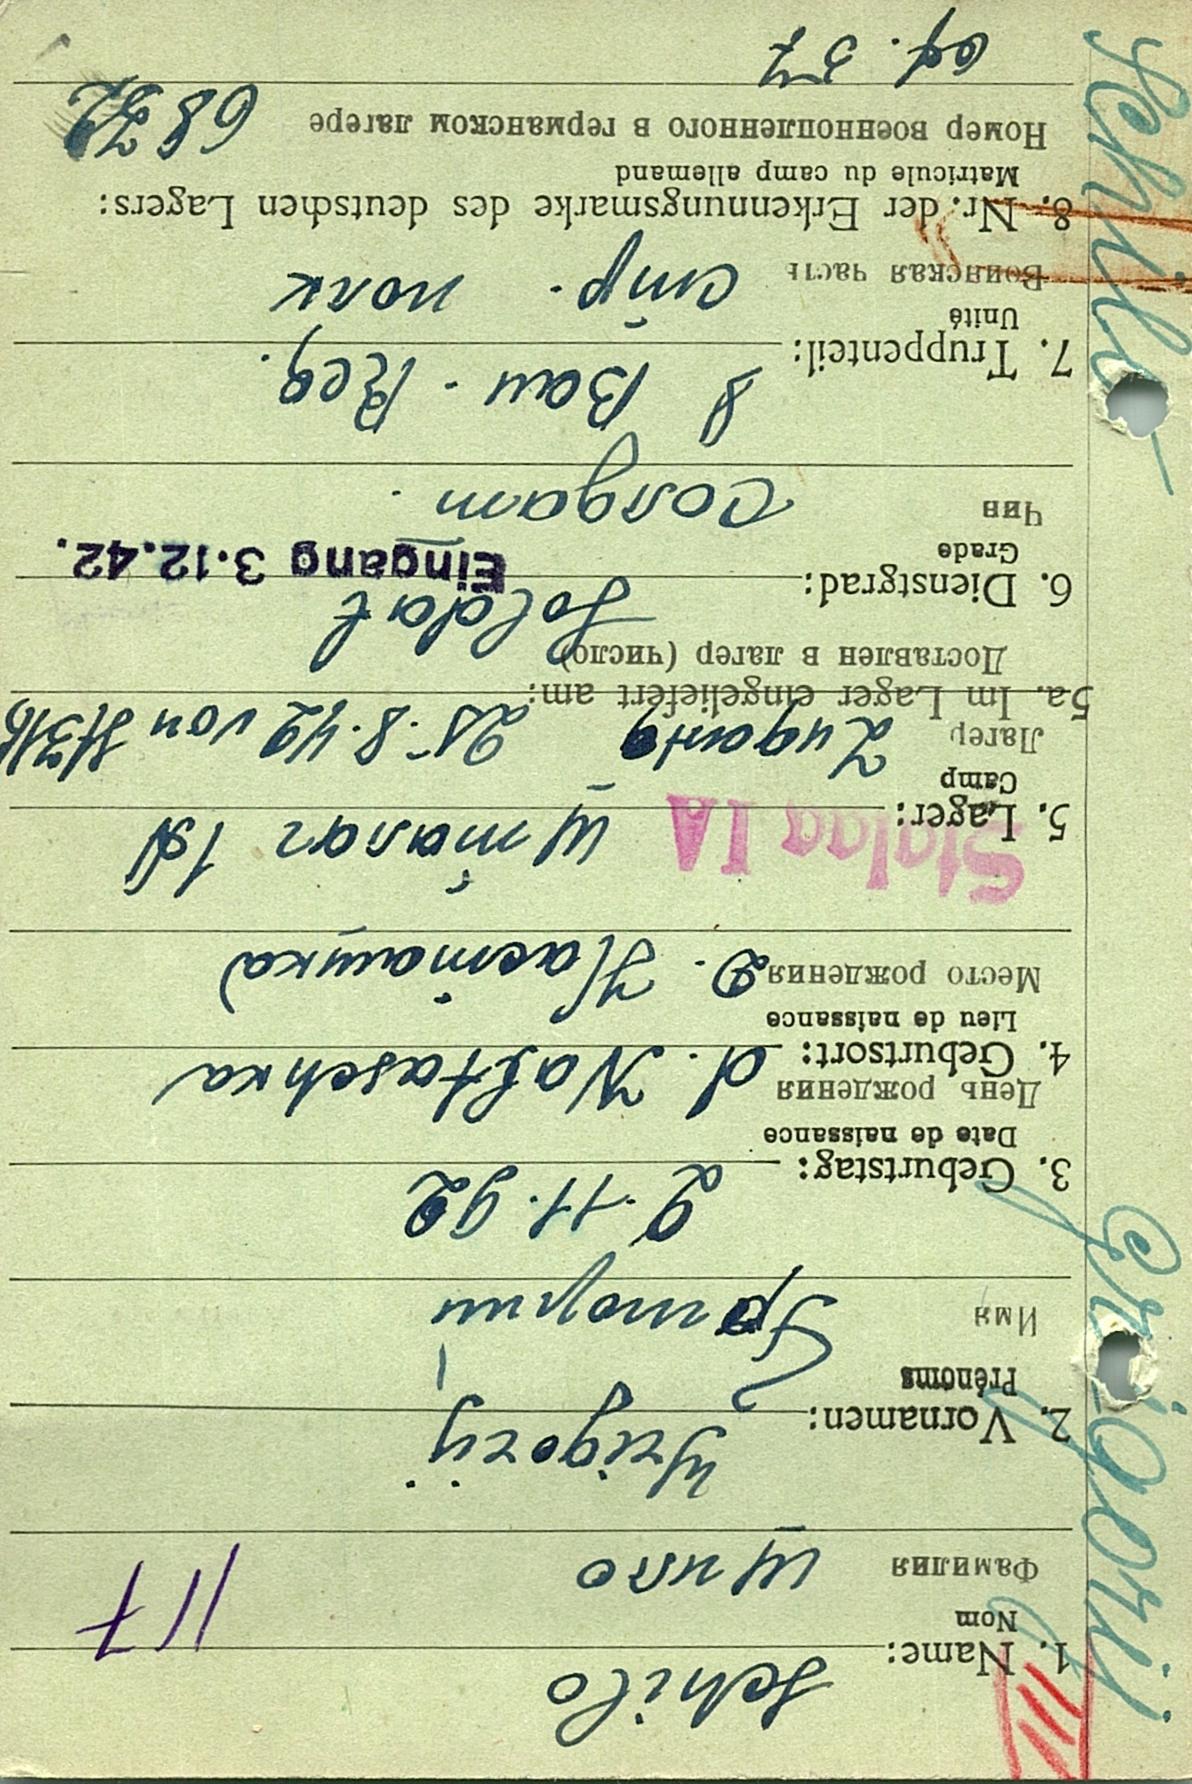 III
Schilo
1. Name:
Nom
Фамилия Шило
117
Grigorij
2. Vornamen:
Prénoms
Имя Григорий
2.11.92
3. Geburtstag:
Date de naissance
День рождения
d. Nastaschka
4. Geburtsort:
Lieu de naissance
Место рождения д. Насташка
Stalag IA
Шталаг 1А
5. Lager:
Camp
Лагерь
Zugang 25.8.42 von
5a. Im Lager eingeliefert am:
Доставлен в лагер (число)
Soldat
Eingang 3.12.42.
6. Dienstgrad:
Grade
Чин солдат.
8 Bau-Reg.
7. Truppenteil:
Unité
Воинская часть стр. полк
8. Nr. der Erkennungsmarke des deutschen Lagers:
Matricule du camp allemand
Номер военнопленного в германском лагере
Schilo Grigorij